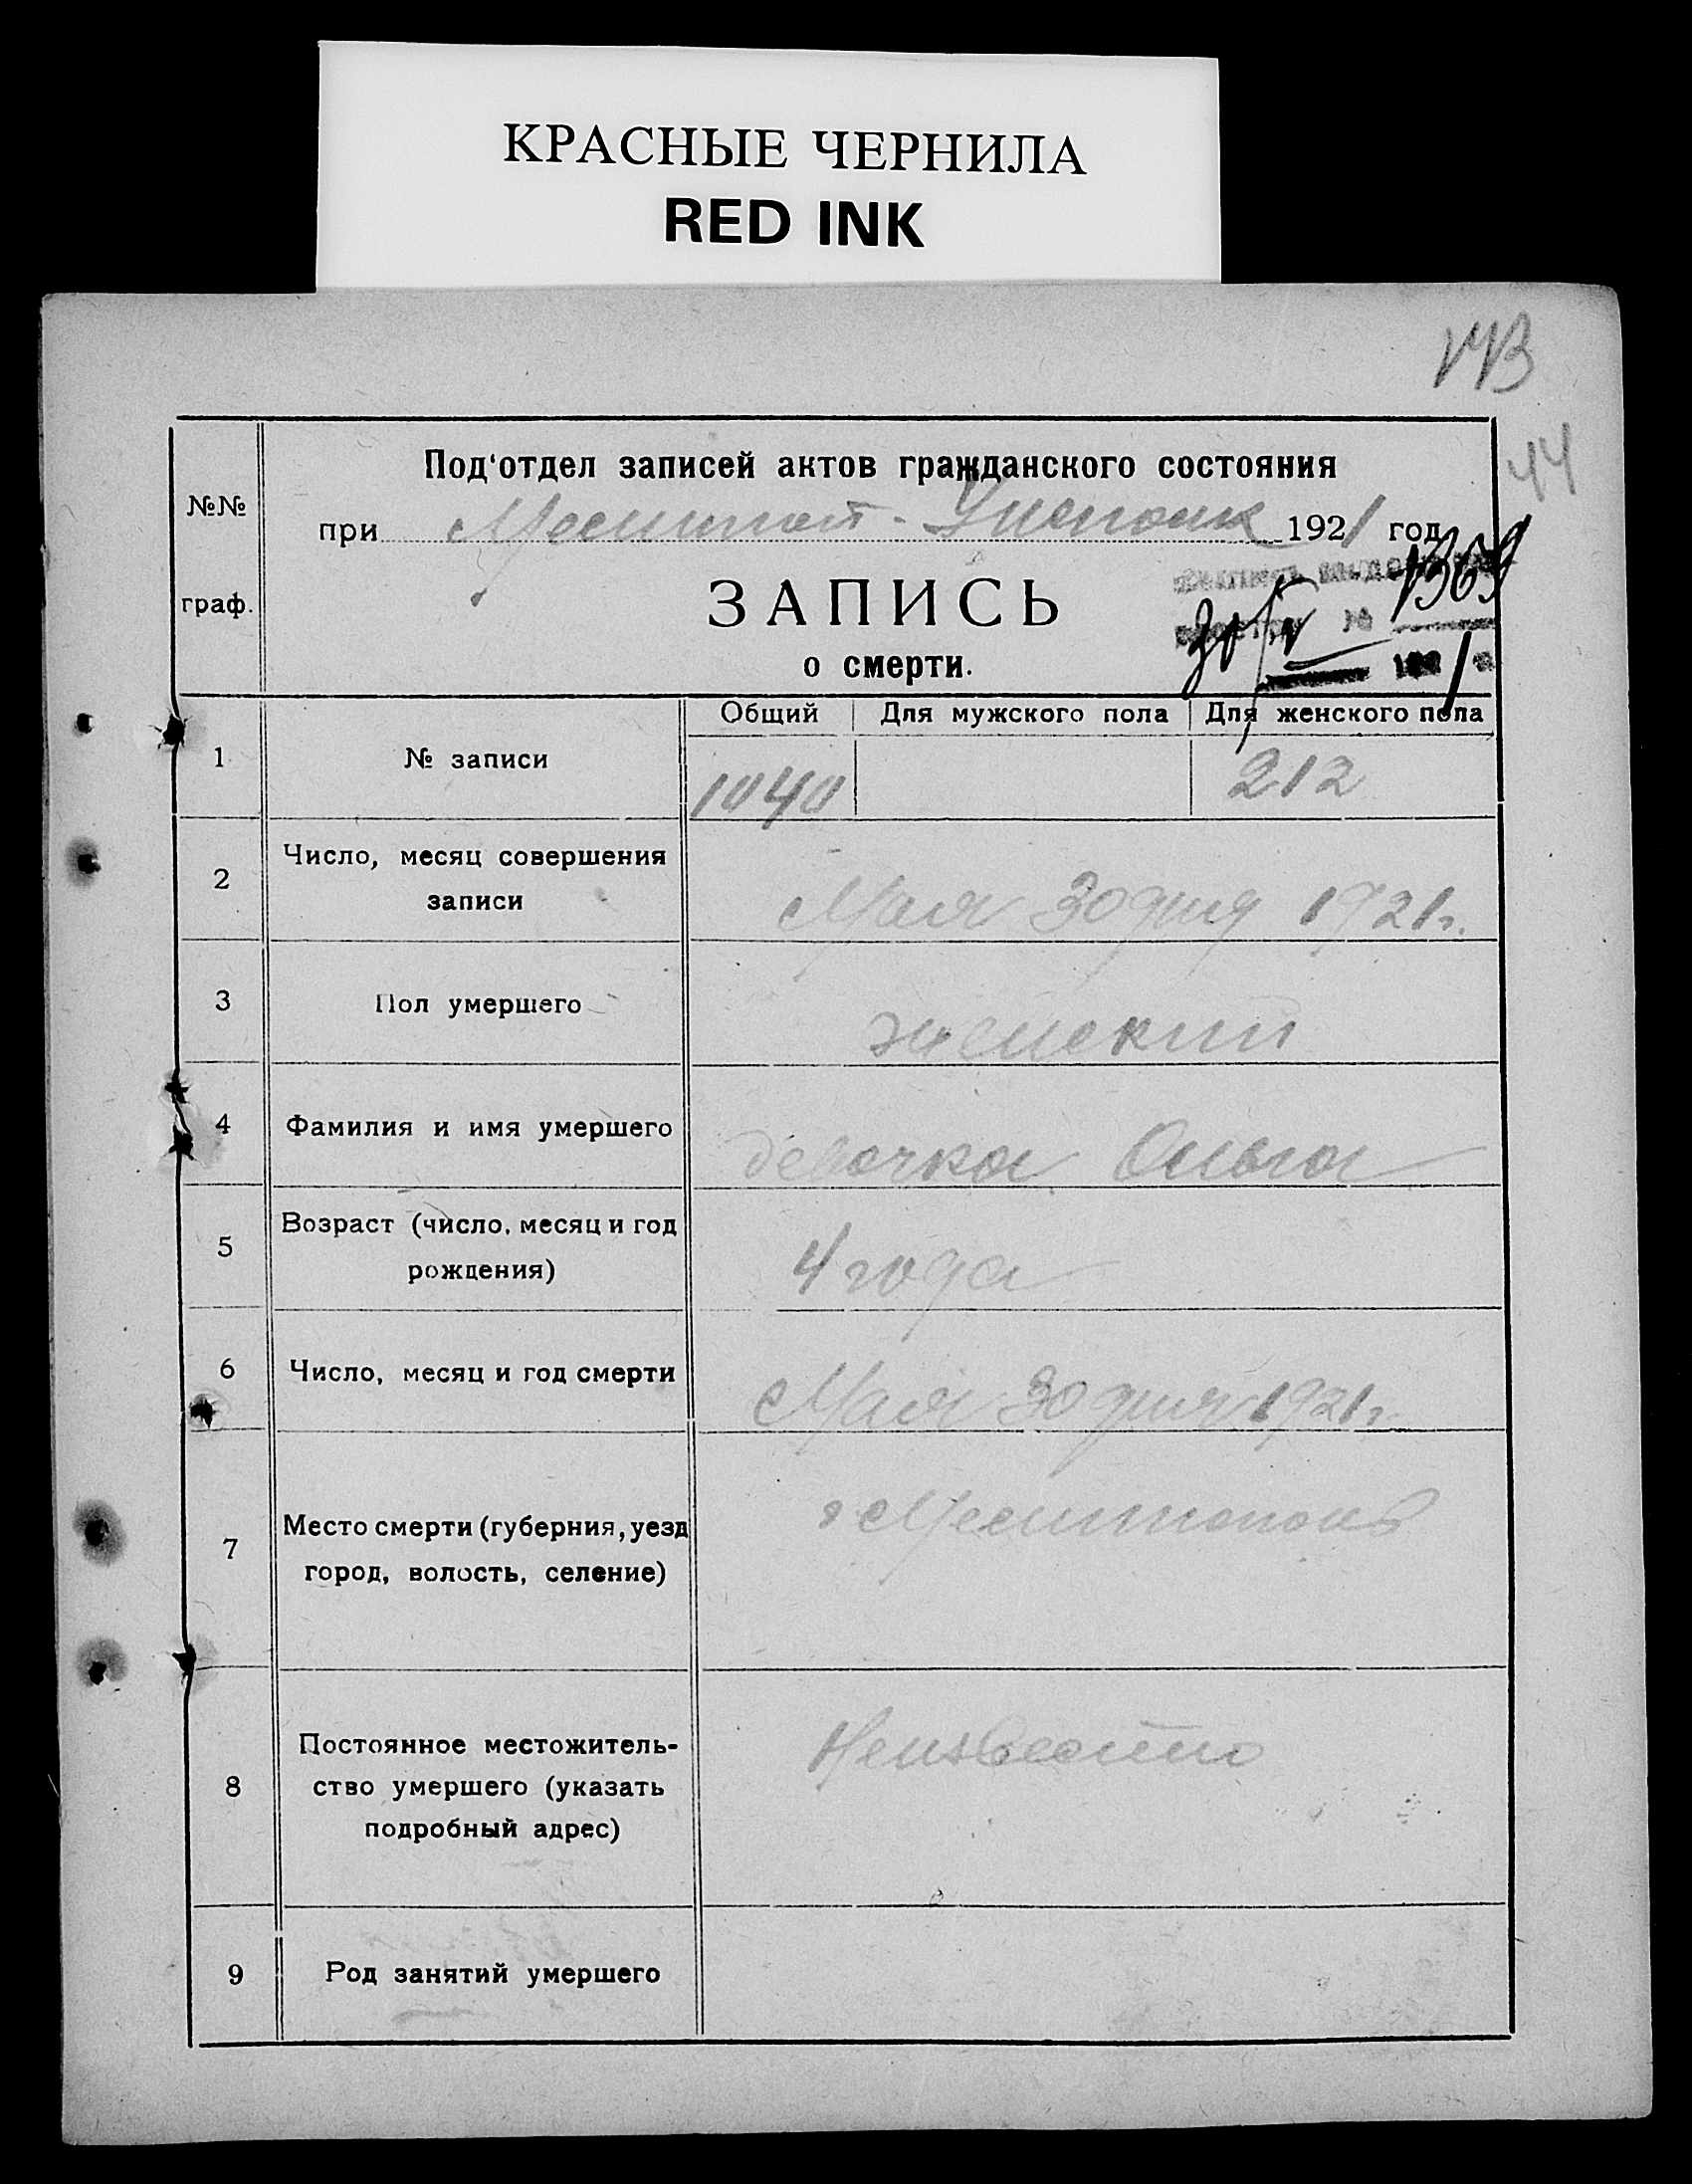 КРАСНЫЕ ЧЕРНИЛА
RED INK
44
Под‘отдел записей актов гражданского состояния
№№
при Мелитоп. Уисполк 1921 год
1369
граф.
ЗАПИСЬ
30/V №
о смерти.
192 1 г.
Общий Для мужского пола Для женского пола
1 № записи 1040 212
Число, месяц совершения
2 записи Мая 30 дня 1921 г.
3 Пол умершего женский
4 Фамилия и имя умершего девочка Ольга
Возраст (число, месяц и год
5 рождения) 4 года
6 Число, месяц и год смерти Мая 30 дня 1921 г.
Место смерти (губерния, уезд
7 город, волость, селение) г Мелитополь
Постоянное местожитель-
8 ство умершего (указать Неизвестно
подробный адрес)
9 Род занятий умершего